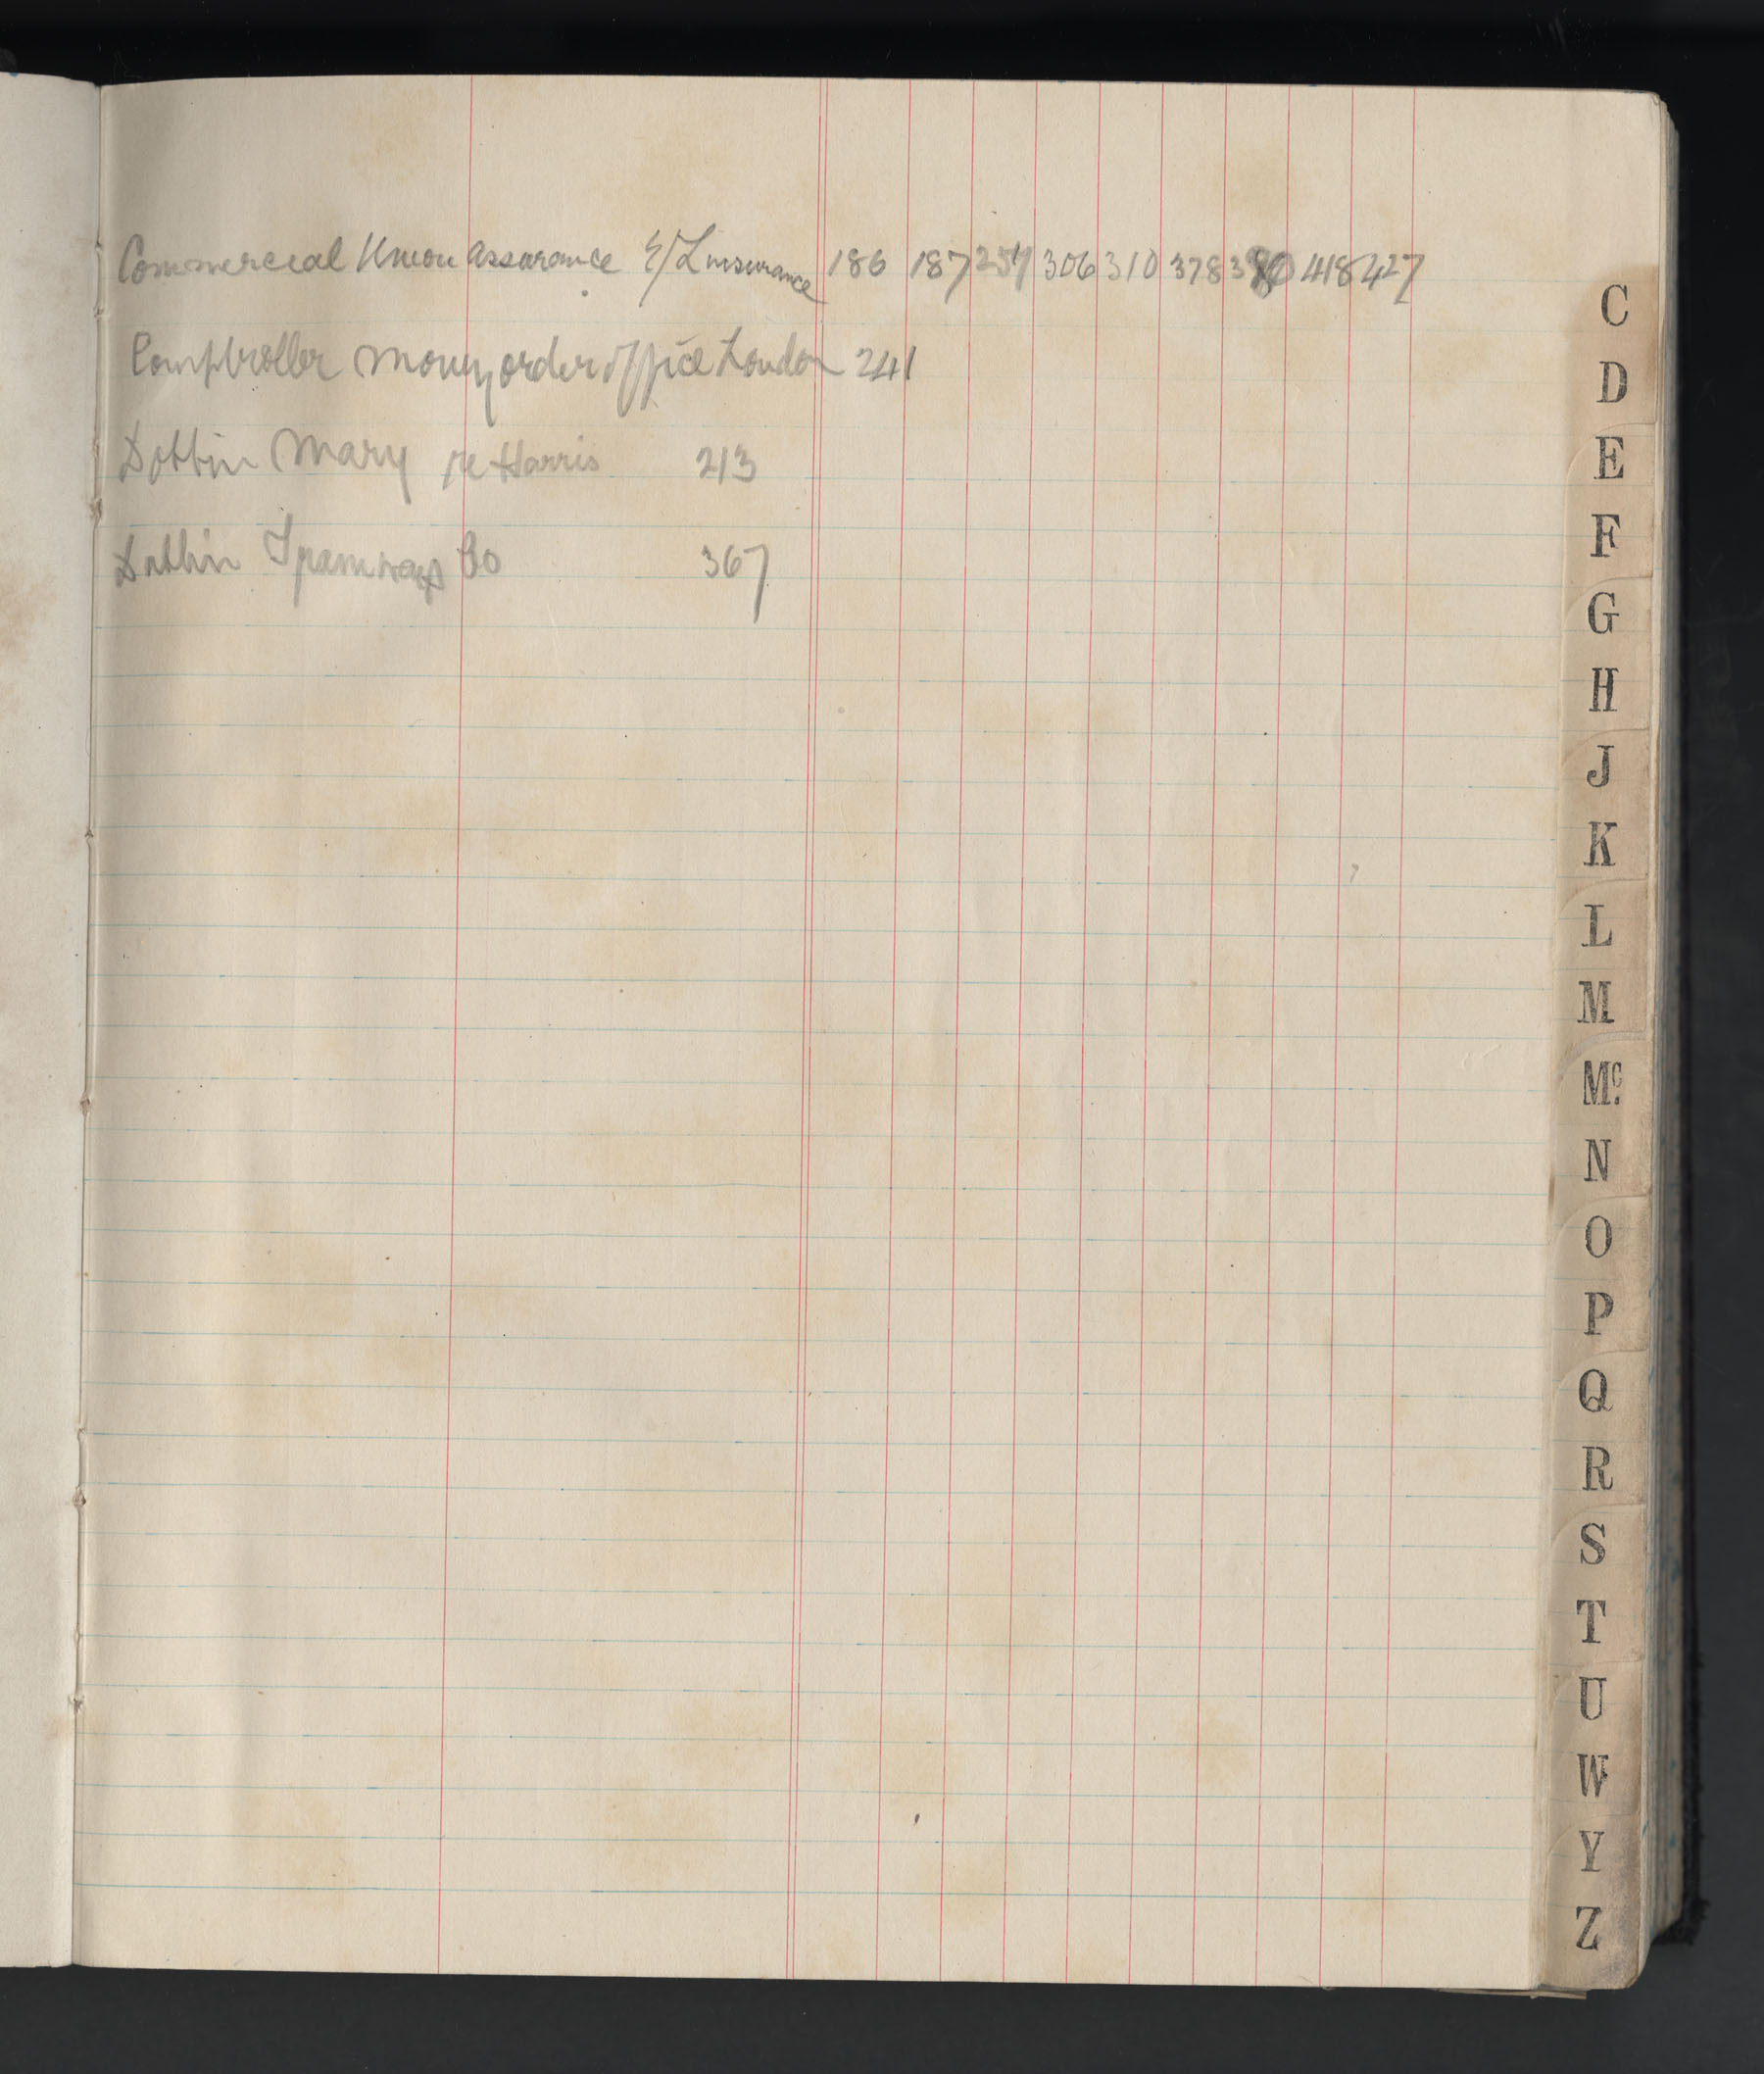 Commercial Union Assurance E/L Insurance 186 187 257 306 310 378 380 418 427
Comptroller Money order office London 241
Dobbin Mary re Harris 213
Dublin Tramways Co 367
C
D
E
F
G
H
J
K
L
M
Mc.
N
O
P
Q
R
S
T
U
W
Y
Z